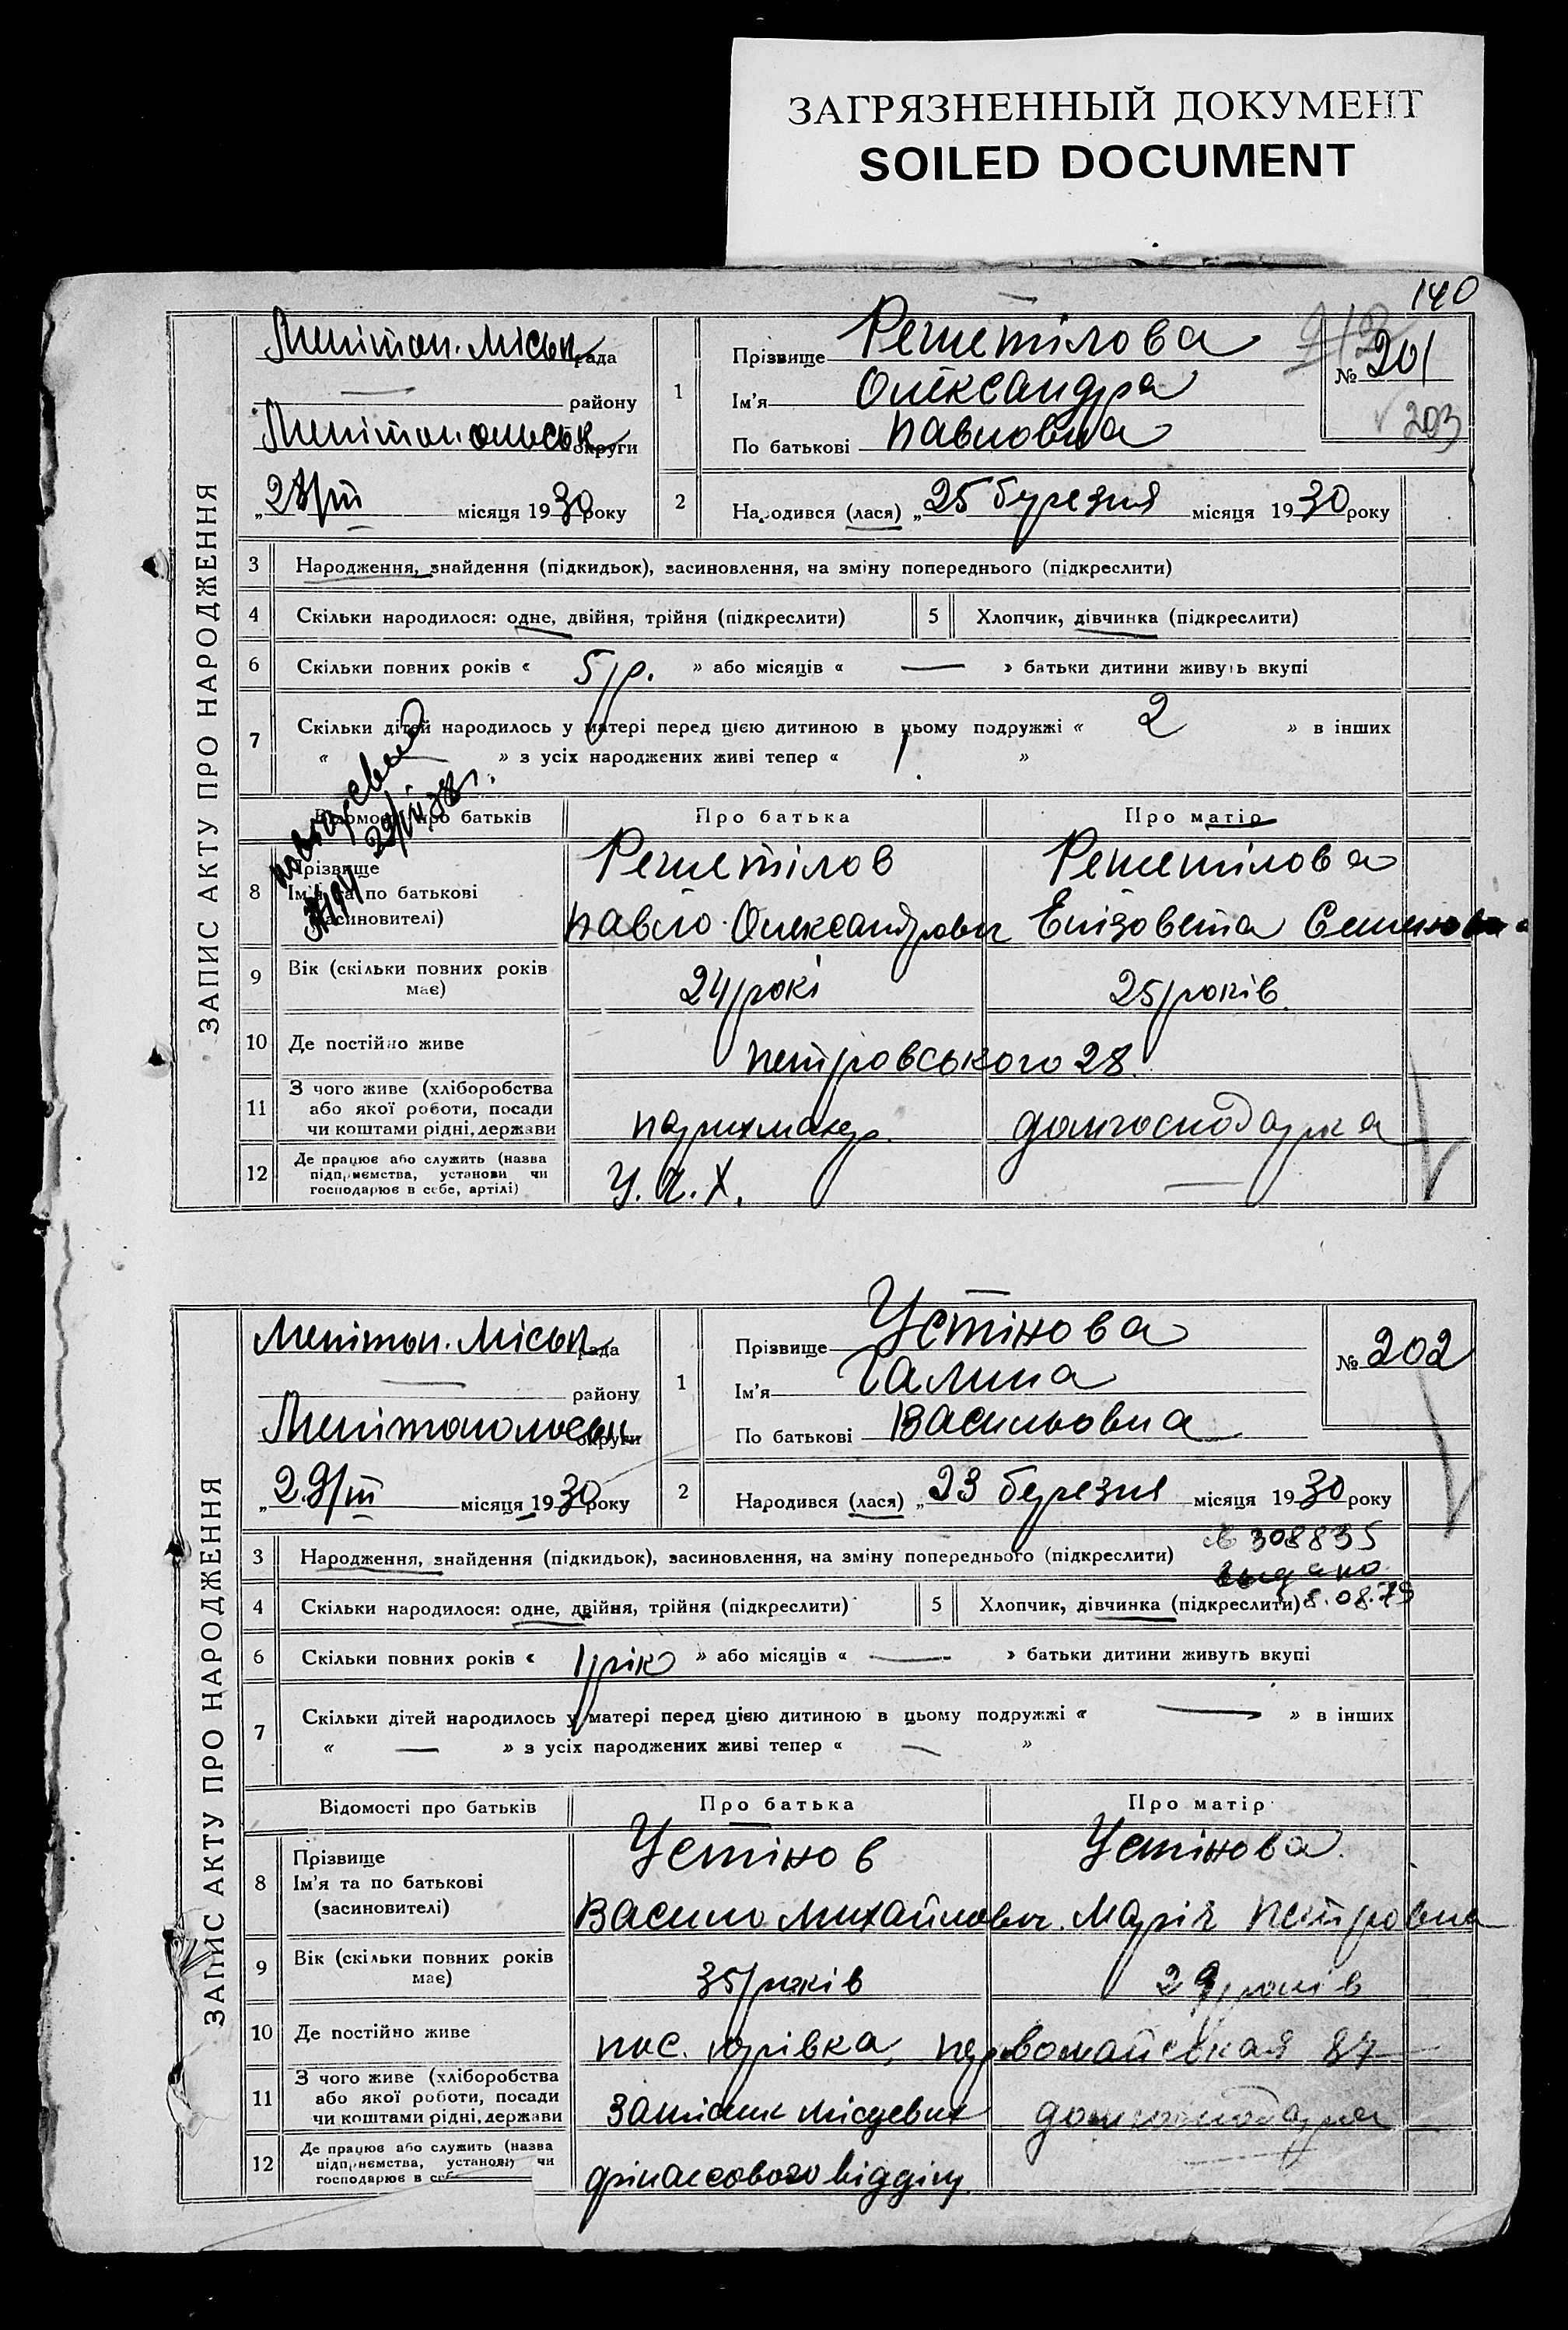 ЗАГРЯЗНЕННЫЙ ДОКУМЕНТ
SOILED DOCUMENT
140
ЗАПИС АКТУ ПРО НАРОДЖЕННЯ
Мелітоп. міськ рада
— району
Мелітопольськ округи
„28/III місяця 1930 року
1 Прізвище Решетілова
Ім'я Олександра
По батькові Павловна
№ 201
203
2 Народився (лася) „25 березня місяця 1930 року
3 Народження, знайдення (підкидьок), засиновлення, на зміну попереднього (підкреслити)
4 Скільки народилося: одне, двійня, трійня (підкреслити) 5 Хлопчик, дівчинка (підкреслити)
6 Скільки повних років « 5/р. » або місяців « — » батьки дитини живуть вкупі
7 Скільки дітей народилось у матері перед цією дитиною в цьому подружжі « 2 » в інших
« » з усіх народжених живі тепер « 1 »
Відомості про батьків Про батька Про матір
8 Прізвище Решетілов Решетілова
Ім'я та по батькові
(засиновителі) Павло Олександрович Елізовета Семеновна
9 Вік (скільки повних років має) 24/рокі 25/років
10 Де постійно живе Петровського 28.
11 З чого живе (хліборобства
або якої роботи, посади
чи коштами рідні, держави парихмахер. домгосподарка
12 Де працює або служить (назва
підприємства, установи чи
господарює в себе, артілі) У. Ч. Х. —
ЗАПИС АКТУ ПРО НАРОДЖЕННЯ
Мелітоп. Міськ рада
— району
Мелітопольськ округи
„29/III місяця 1930 року
1 Прізвище Устінова
Ім'я Галина
По батькові Васильовна
№ 202
2 Народився (лася) „23 березня місяця 1930 року
308835
3 Народження, знайдення (підкидьок), засиновлення, на зміну попереднього (підкреслити)
выдано
4 Скільки народилося: одне, двійня, трійня (підкреслити) 5 Хлопчик, дівчинка (підкреслити) 8.08.79
6 Скільки повних років « 1/рік » або місяців « — » батьки дитини живуть вкупі
7 Скільки дітей народилось у матері перед цією дитиною в цьому подружжі « — » в інших
« — » з усіх народжених живі тепер « — »
Відомості про батьків Про батька Про матір
8 Прізвище Устінов Устінова
Ім'я та по батькові
(засиновителі) Василь Михайлович Марія Петровна
9 Вік (скільки повних років має) 35/років 29/років
10 Де постійно живе пос. Юрівка, Первомайськая 87
11 З чого живе (хліборобства
або якої роботи, посади
чи коштами рідні, держави домгосподарка
12 Де працює або служить (назва
підприємства, установи чи
господарює в фінансового відділу